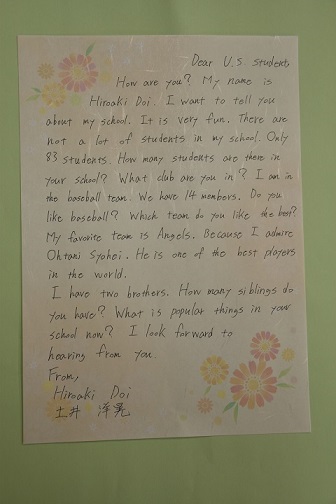 Dear U.S. students,
How are you? My name is
Hiroaki Doi. I want to tell you
about my school. It is very fun. There are
not a lot of students in my school. Only
83 students. How many students are there in
your school? What club are you in? I am in
the baseball team. We have 14 members. Do you
like baseball? Which team do you like the best?
My favorite team is Angels. Because I admire
Ohtani Syohei. He is one of the best players
in the world.
I have two brothers. How many siblings do
you have? What is popular things in your
school now? I look forward to
hearing from you.
From,
Hiroaki Doi
土井 洋晃